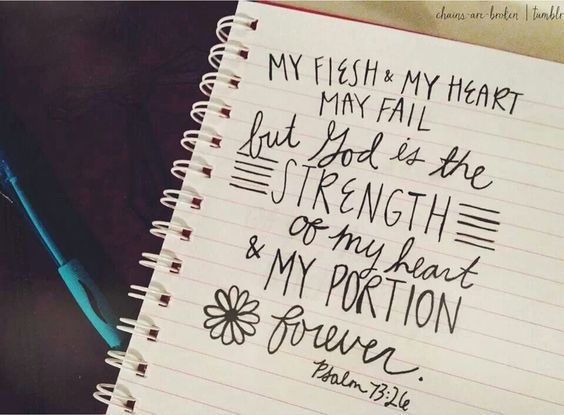 chains-are-broken | tumblr
MY FLESH & MY HEART
MAY FAIL
but God is the
STRENGTH
of my heart
& MY PORTION
forever.
Psalm 73:26